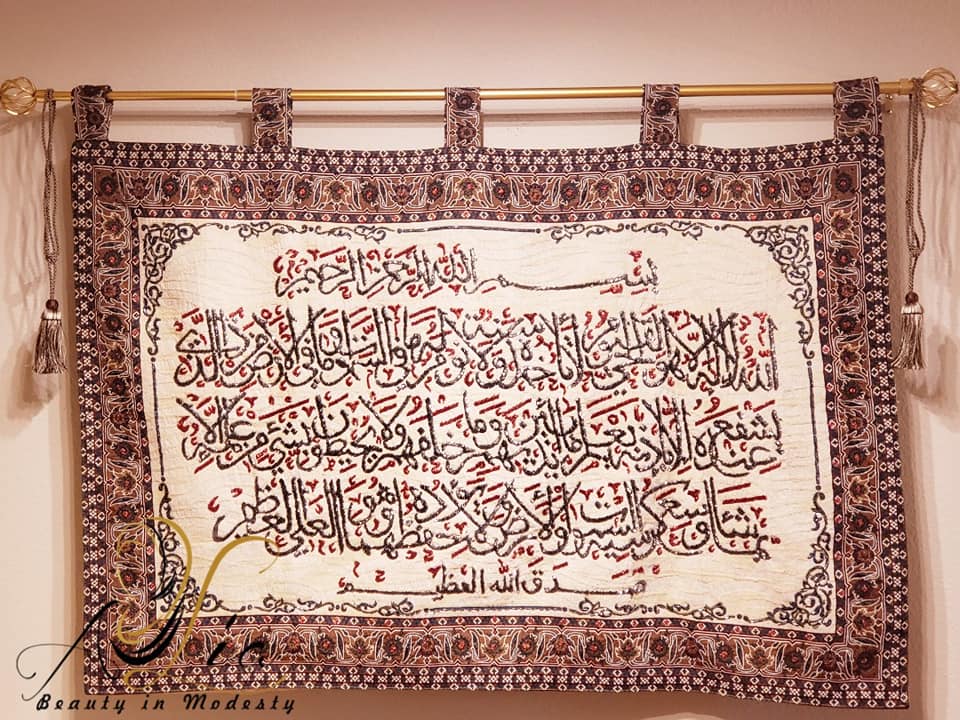 بِسْمِ اللَّهِ الرَّحْمَٰنِ الرَّحِيمِ
اللَّهُ لَا إِلَٰهَ إِلَّا هُوَ الْحَيُّ الْقَيُّومُ لَا تَأْخُذُهُ سِنَةٌ وَلَا نَوْمٌ لَهُ مَا فِي السَّمَاوَاتِ وَمَا فِي الْأَرْضِ مَنْ ذَا الَّذِي
يَشْفَعُ عِنْدَهُ إِلَّا بِإِذْنِهِ يَعْلَمُ مَا بَيْنَ أَيْدِيهِمْ وَمَا خَلْفَهُمْ وَلَا يُحِيطُونَ بِشَيْءٍ مِنْ عِلْمِهِ إِلَّا
بِمَا شَاءَ وَسِعَ كُرْسِيُّهُ السَّمَاوَاتِ وَالْأَرْضَ وَلَا يَئُودُهُ حِفْظُهُمَا وَهُوَ الْعَلِيُّ الْعَظِيمُ
صدق الله العظيم
Beauty in Modesty